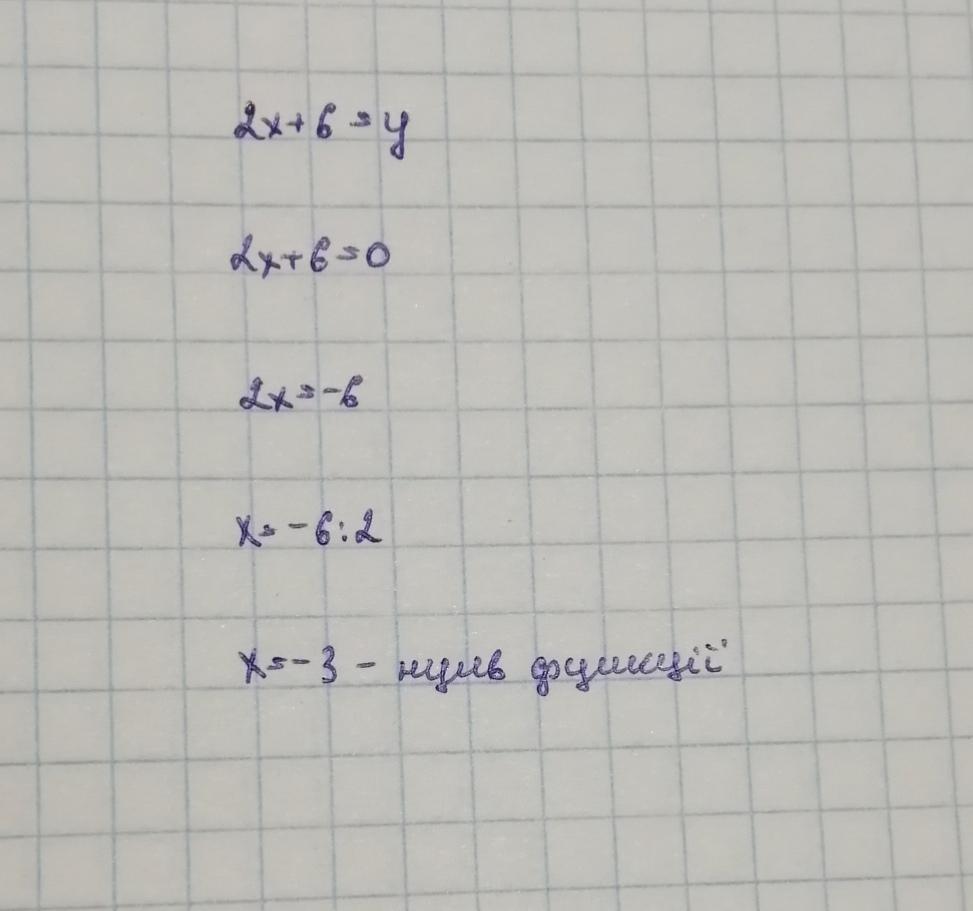 2x+6=y
2x+6=0
2x=-6
x=-6:2
x=-3 - нуль функції